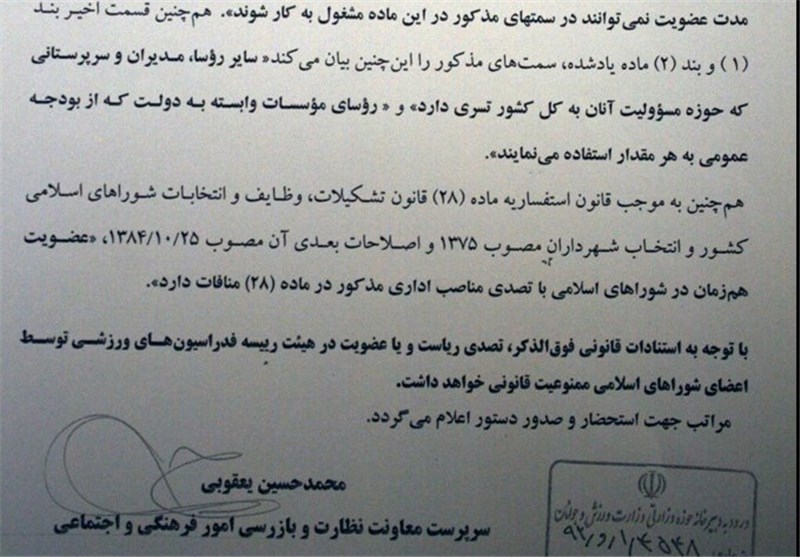 مدت عضویت نمی‌توانند در سمتهای مذکور در این ماده مشغول به کار شوند». هم‌چنین قسمت اخیر بند
(۱) و بند (۲) ماده یادشده، سمت‌های مذکور را این‌چنین بیان می‌کند« سایر رؤسا، مدیران و سرپرستانی
که حوزه مسؤولیت آنان به کل کشور تسری دارد» و « رؤسای مؤسسات وابسته به دولت که از بودجه
عمومی به هر مقدار استفاده می‌نمایند».
هم‌چنین به موجب قانون استفساریه ماده (۲۸) قانون تشکیلات، وظایف و انتخابات شوراهای اسلامی
کشور و انتخاب شهرداران مصوب ۱۳۷۵ و اصلاحات بعدی آن مصوب ۱۳۸۴/۱۰/۲۵، «عضویت
هم‌زمان در شوراهای اسلامی با تصدی مناصب اداری مذکور در ماده (۲۸) منافات دارد».
با توجه به استنادات قانونی فوق‌الذکر، تصدی ریاست و یا عضویت در هیئت رییسه فدراسیون‌های ورزشی توسط
اعضای شوراهای اسلامی ممنوعیت قانونی خواهد داشت.
مراتب جهت استحضار و صدور دستور اعلام می‌گردد.
محمدحسین یعقوبی
سرپرست معاونت نظارت و بازرسی امور فرهنگی و اجتماعی
ورود به دبیرخانه حوزه وزارتی وزارت ورزش و جوانان